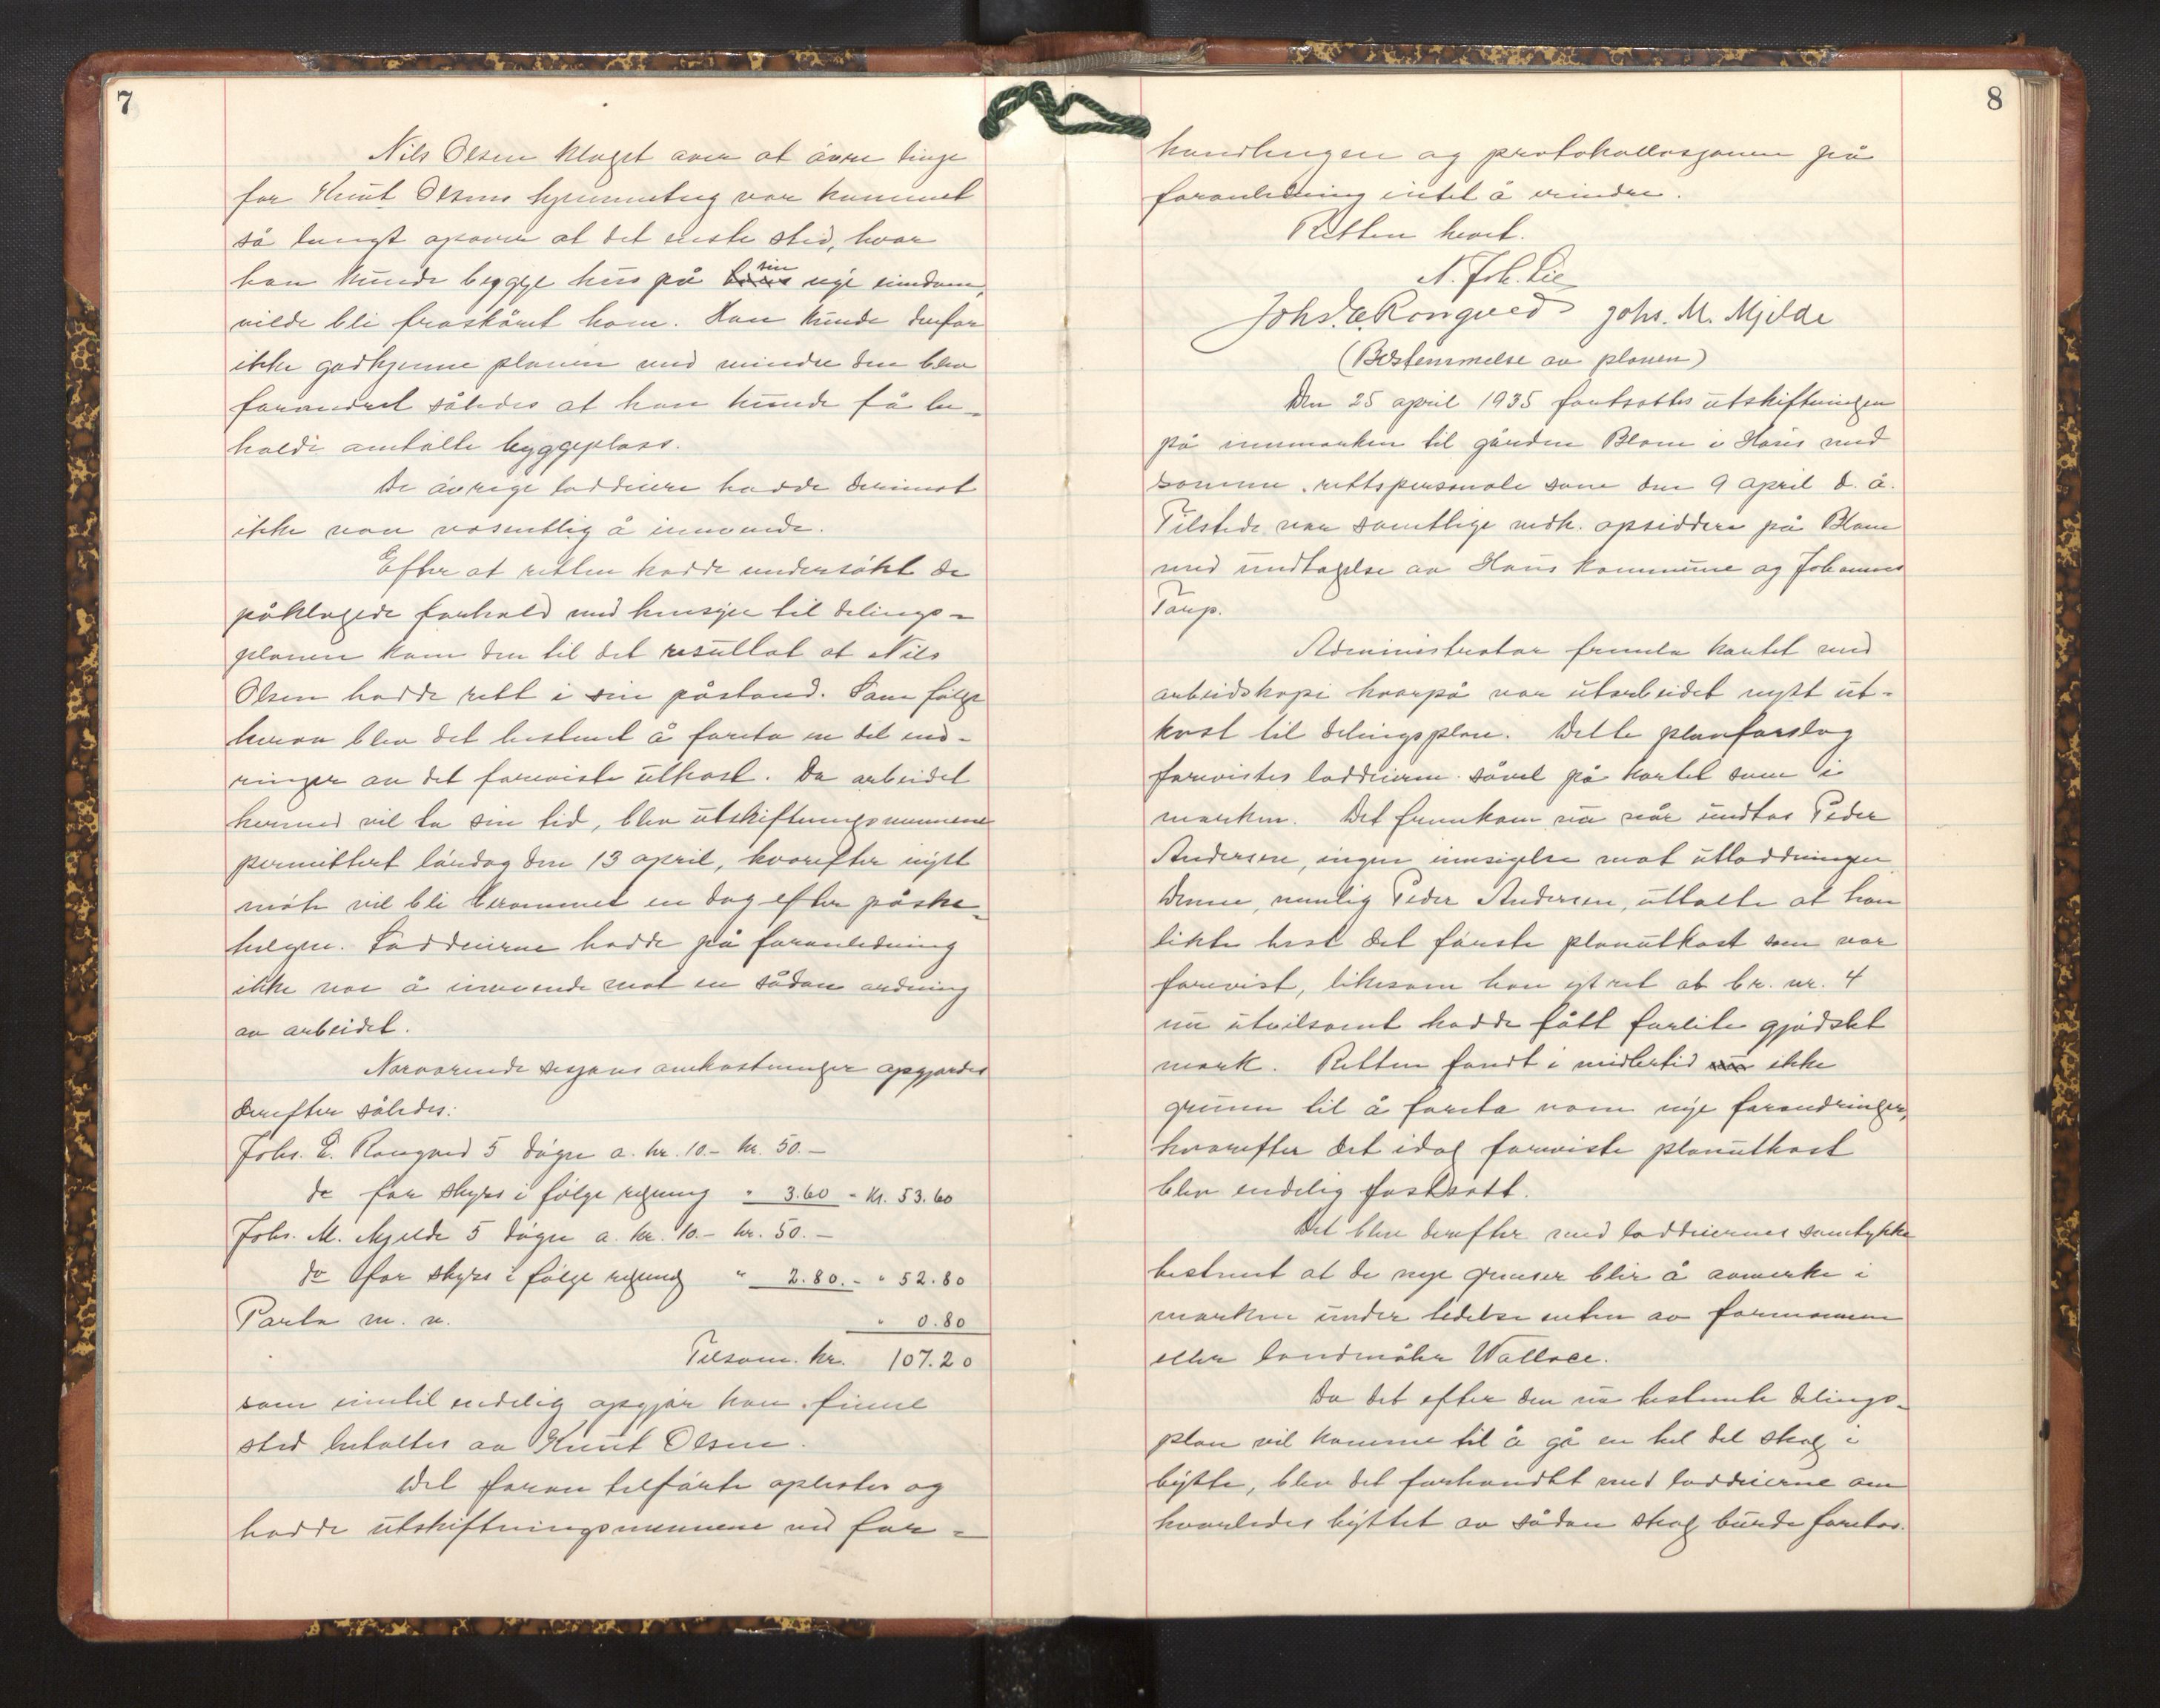 7
Nils Olsen klaget over at øvre linje
for Knut Olsens hjemmeteig var kommet
så langt opover at det eneste sted, hvor
han kunde bygge hus på sin nye eiendom,
vilde bli fraskåret ham. Han kunde derfor
ikke godkjenne planen med mindre den blev
forandret således at han kunde få be-
holde omtalte byggeplass.
De øvrige loddeiere hadde derimot
ikke noe vesentlig å innvende.
Efter at retten hadde undersøkt de
påklagede forhold med hensyn til delings-
planen kom den til det resultat at Nils
Olsen hadde rett i sin påstand. Som følge
herav blev det bestemt å foreta en del end-
ringer av det foreviste utkast. Da arbeidet
hermed vil ta sin tid, blev utskiftningsmennene
permittert lørdag den 13 april, hvorefter nytt
møte vil bli berammet en dag efter påske-
helgen. Loddeierne hadde på foranledning
ikke noe å innvende mot en sådan ordning
av arbeidet.
Nærværende sesjons omkostninger opgjordes
derefter således:
Johs. E. Rongved 5 døgn a. kr. 10.- kr. 50.-
do for skyss i følge regning " 3.60 - Kr. 53.60
Johs. M. Mjelde 5 døgn a. kr. 10.- kr. 50.-
do for skyss i følge regning " 2.80.- " 52.80
Porto m. v. " 0.80
Tilsam. kr. 107.20
som inntil endelig opgjør kan finne
sted betaltes av Knut Olsen.
Det foran tilførte oplestes og
hadde utskiftningsmennene ved for-
8
handlingen og protokollasjonen på
foranledning intet å erindre.
Retten hevet.
N. Joh. Lie
Johs. E. Rongved Johs. M. Mjelde
(Bestemmelse av planen)
Den 25 april 1935 fortsattes utskiftningen
på innmarken til gården Blom i Haus med
samme rettspersonale som den 9 april d. å.
Tilstede var samtlige vedk. opsiddere på Blom
med undtagelse av Haus kommune og Johannes
Taup.
Administrator fremla kartet med
arbeidskopi hvorpå var utarbeidet nytt ut-
kast til delingsplan. Dette planforslag
forevistes loddeierne såvel på kartet som i
marken. Det fremkom nu når undtas Peder
Andersen, ingen innsigelse mot utloddningen.
Denne, nemlig Peder Andersen, uttalte at han
likte best det første planutkast som var
forevist, likesom han ytret at br. nr. 4
nu utvilsomt hadde fått forlite gjødslet
mark. Retten fandt imidlertid ikke
grunn til å foreta noen nye forandringer,
hvorefter det idag foreviste planutkast
blev endelig fastsatt.
Det blev derefter med loddeiernes samtykke
bestemt at de nye grenser blir å avmerke i
marken under ledelse enten av formannen
eller landmåler Wallace.
Da det efter den nu bestemte delings-
plan vil komme til å gå en hel del skog i
bytte, blev det forhandlet med loddeierne om
hvorledes byttet av sådan skog burde foretas.